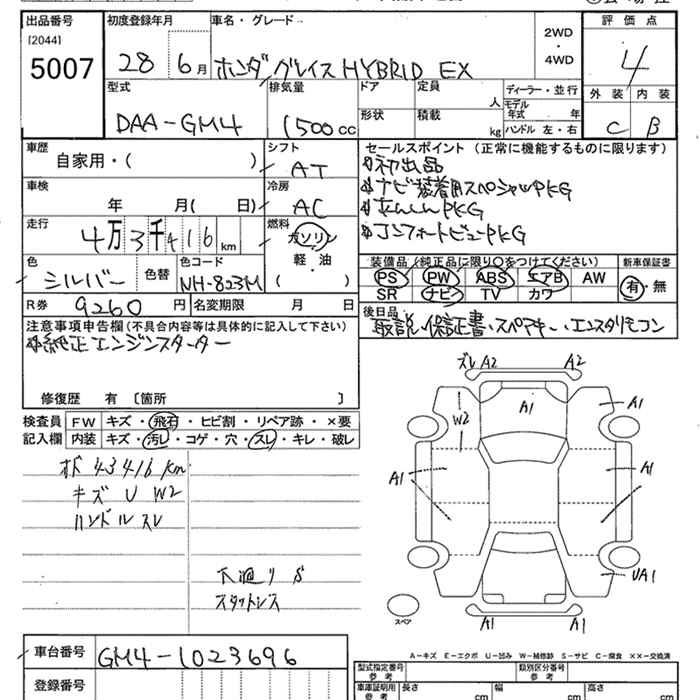 出品番号
[2044]
5007
初度登録年月
28 6月
車名・グレード
ホンダ グレイス HYBRID EX
2WD
・
4WD
評価点
4
外装 内装
C B
型式
DAA-GM4
排気量
1500cc
ドア
定員
人
形状
積載
kg
ディーラー・並行
モデル
年式 年
ハンドル 左・右
車歴
自家用・( )
シフト
AT
車検
年 月( 日)
冷房
AC
走行
4万3千416km
燃料
ガソリン
軽・油
( )
色
シルバー
色替
色コード
NH-823M
R券 9260円
名変期限 月 日
セールスポイント (正常に機能するものに限ります)
初出品
ナビ装着用スペシャルPKG
あんしんPKG
コンフォートビューPKG
装備品(純正品に限り○をつけてください)
新車保証書
PS PW ABS エアB AW
SR ナビ TV カワ
有・無
後日品
取説・保証書・スペアキー・エンスタリモコン
注意事項申告欄(不具合内容等は具体的に記入して下さい)
純正エンジンスターター
修復歴 有 〔箇所 〕
検査員
記入欄
FW キズ・飛石・ヒビ割・リペア跡・×要
内装 キズ・汚レ・コゲ・穴・スレ・キレ・破レ
オド 43416km
キズ U W2
ハンドルスレ
下廻りS
スタットレス
ズレ A2 A2
A1
A1
W2
A1
A1
UA1
A1 A1
スペア
A-キズ E-エクボ U-凹み W-補修跡 S-サビ C-腐食 ××-交換済
車台番号
GM4-1023696
登録番号
型式指定番号
参考
類別区分番号
参考
車庫証明用
参考
長さ cm
幅 cm
高さ cm